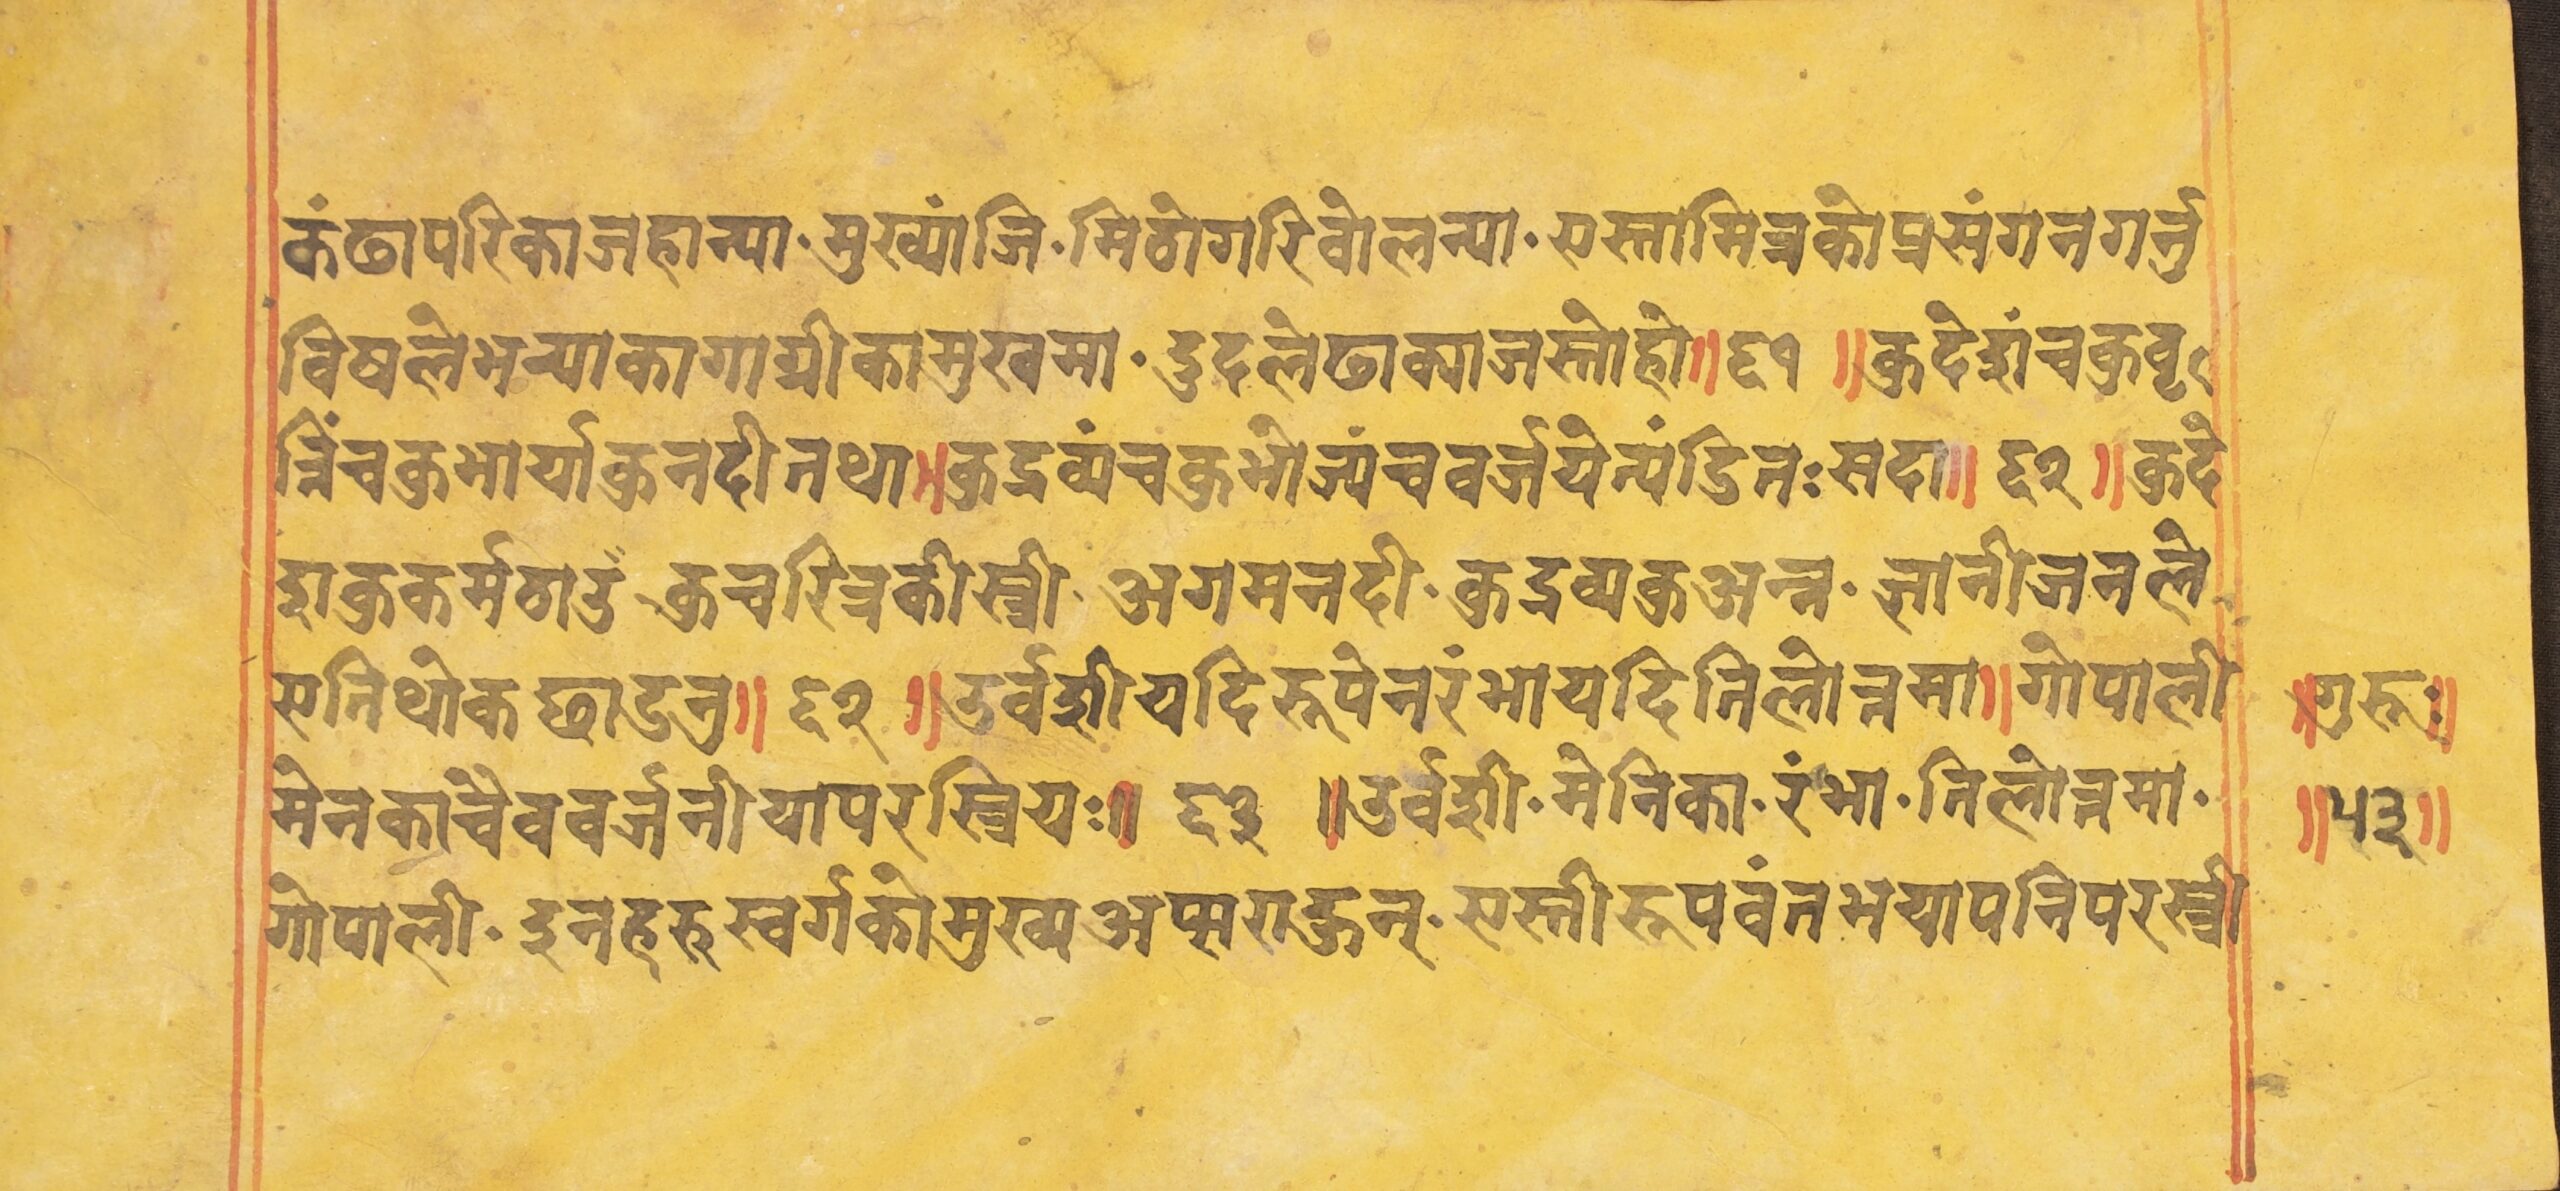 कंछापरिकाजहान्या· मुख्यांजि· मिठोगरिवोलन्या· एस्तामित्रकोप्रसंगनगर्नु
विषलेभन्याकागाग्रीकामुखमा· दुदलेछाक्याजस्तोहो॥ ६१ ॥ कुदेशंचकुवृ
त्तिंचकुभार्याकुनदीतथा॥ कुद्रव्यंचकुभोज्यंचवर्जयेत्पंडितः सदा॥ ६२ ॥ कुदे
शकुकर्मठाउँ कुचरित्रकीस्त्री· अगमनदी· कुद्रव्यकुअन्न· ज्ञानीजनले
एतिथोकछाडनु॥ ६२ ॥ उर्वशीयदिरूपेनरंभायदितिलोत्तमा॥ गोपाली
मेनकाचैववर्जनीयापरस्त्रियः॥ ६३ ॥ उर्वशी· मेनिका· रंभा· तिलोत्तमा·
गोपाली· इनहरुस्वर्गकोमुख्यअप्सराहुन्· एस्तीरूपवंतभयापनिपरस्त्री
॥गुरुः॥
॥५३॥